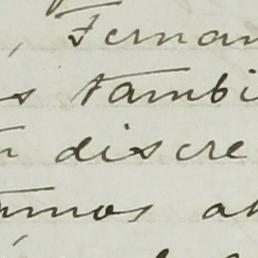 , Fernan
s tambi
n discre
amos ah